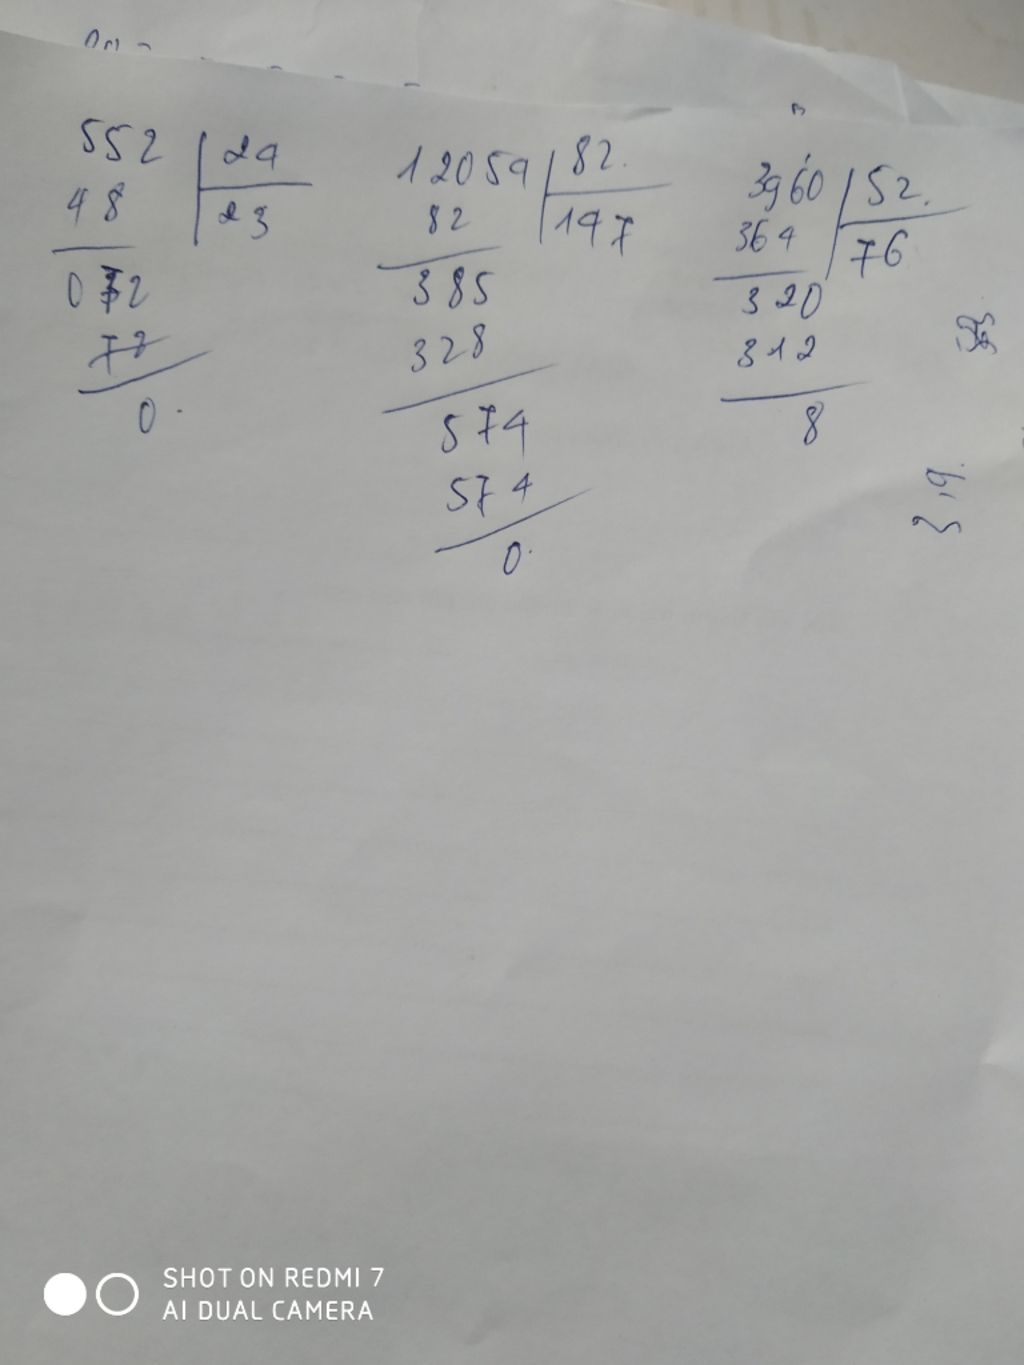 552 24
48 23
072
72
0.
12054 82.
82 147
385
328
574
574
0.
3960 52.
364 76
320
312
8
SHOT ON REDMI 7
AI DUAL CAMERA